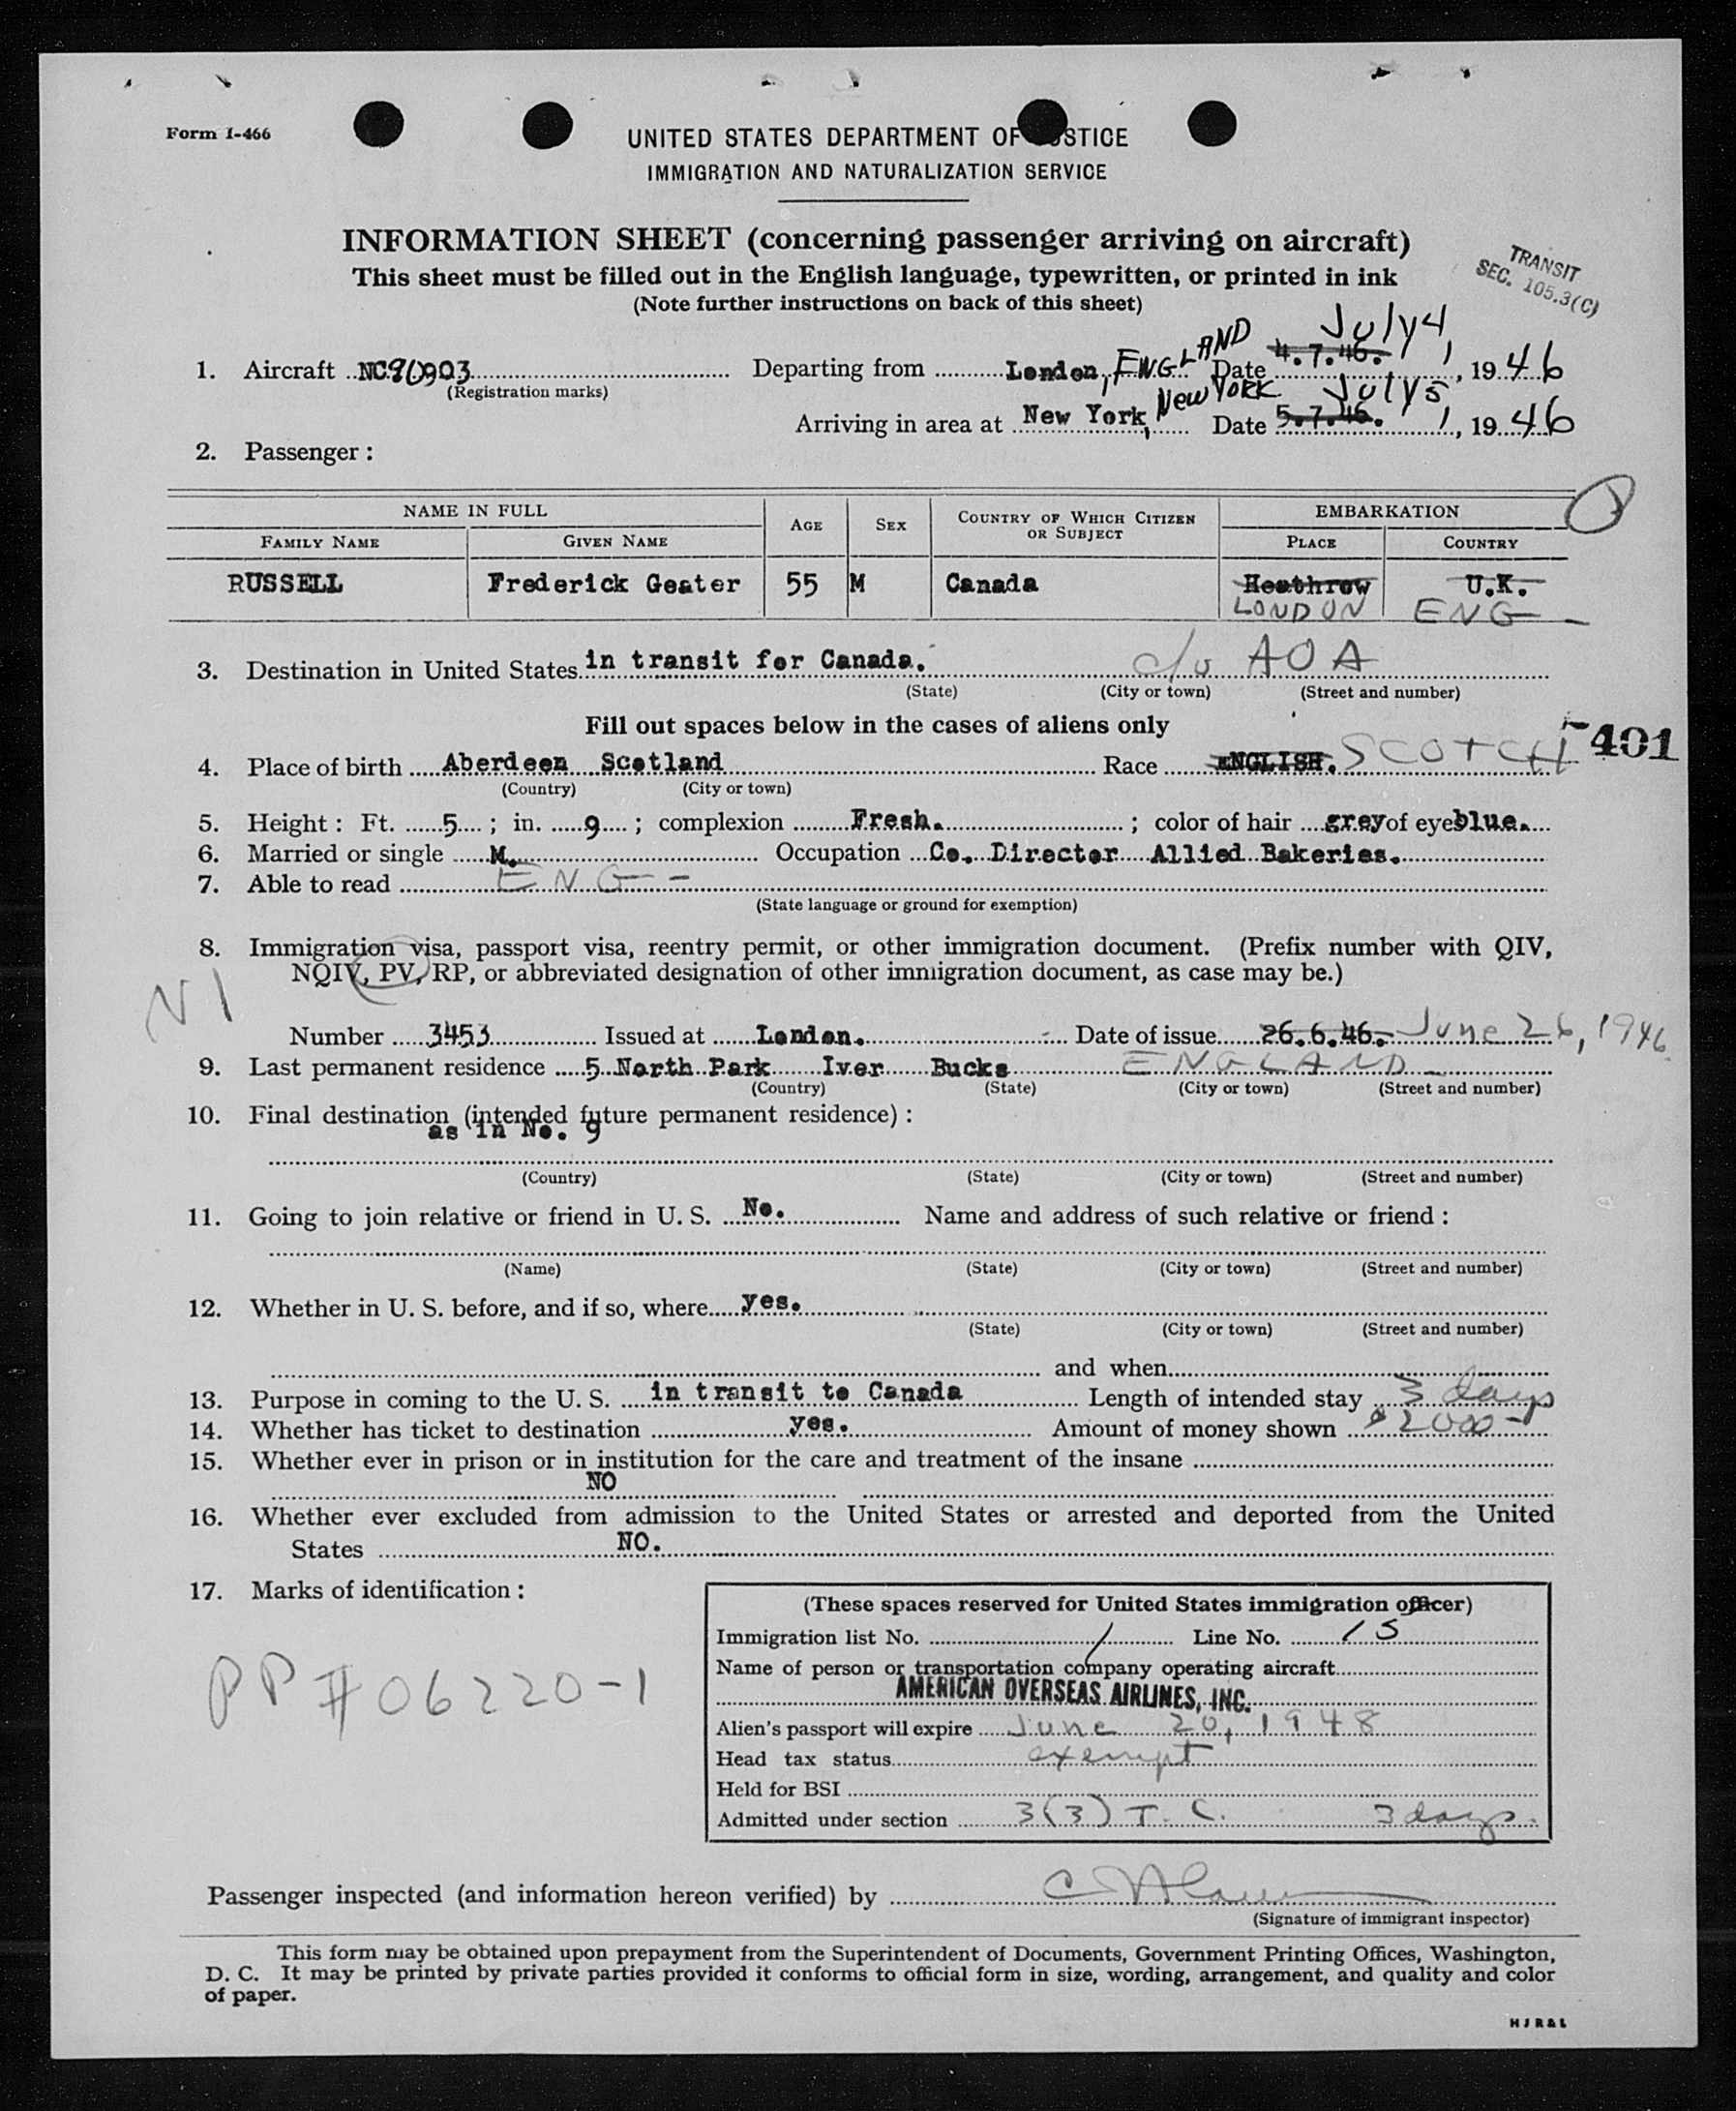 Form I-466
UNITED STATES DEPARTMENT OF JUSTICE
IMMIGRATION AND NATURALIZATION SERVICE
INFORMATION SHEET (concerning passenger arriving on aircraft)
This sheet must be filled out in the English language, typewritten, or printed in ink
(Note further instructions on back of this sheet)
TRANSIT
SEC. 105.3(C)
1. Aircraft NC90903 Departing from London, ENGLAND Date 4.7.46. July 4, 1946
(Registration marks)
Arriving in area at New York, New York Date 5.7.46. July 5, 1946
2. Passenger:
NAME IN FULL AGE SEX COUNTRY OF WHICH CITIZEN OR SUBJECT EMBARKATION
FAMILY NAME GIVEN NAME PLACE COUNTRY
RUSSELL Frederick Geater 55 M Canada Heathrow U.K.
LONDON ENG -
3. Destination in United States in transit for Canada. c/o AOA
(State) (City or town) (Street and number)
Fill out spaces below in the cases of aliens only
401
4. Place of birth Aberdeen Scotland Race ENGLISH. SCOTCH
(Country) (City or town)
5. Height: Ft. 5; in. 9; complexion Fresh.; color of hair grey of eye blue.
6. Married or single M. Occupation Co. Director Allied Bakeries.
7. Able to read ENG -
(State language or ground for exemption)
8. Immigration visa, passport visa, reentry permit, or other immigration document. (Prefix number with QIV,
NQIV, PV, RP, or abbreviated designation of other immigration document, as case may be.)
Number 3453 Issued at London. Date of issue 26.6.46. June 26, 1946
9. Last permanent residence 5 North Park Iver Bucks ENGLAND -
(Country) (State) (City or town) (Street and number)
10. Final destination (intended future permanent residence):
as in No. 9
(Country) (State) (City or town) (Street and number)
11. Going to join relative or friend in U. S. No. Name and address of such relative or friend:
(Name) (State) (City or town) (Street and number)
12. Whether in U. S. before, and if so, where yes.
(State) (City or town) (Street and number)
and when
13. Purpose in coming to the U. S. in transit to Canada Length of intended stay 3 days
14. Whether has ticket to destination yes. Amount of money shown $2000-
15. Whether ever in prison or in institution for the care and treatment of the insane
NO
16. Whether ever excluded from admission to the United States or arrested and deported from the United
States NO.
17. Marks of identification:
PP # 06220-1
(These spaces reserved for United States immigration officer)
Immigration list No. 1 Line No. 15
Name of person or transportation company operating aircraft
AMERICAN OVERSEAS AIRLINES, INC.
Alien's passport will expire June 20, 1948
Head tax status exempt
Held for BSI
Admitted under section 3(3) T. C. 3 days.
Passenger inspected (and information hereon verified) by
(Signature of immigrant inspector)
This form may be obtained upon prepayment from the Superintendent of Documents, Government Printing Offices, Washington,
D. C. It may be printed by private parties provided it conforms to official form in size, wording, arrangement, and quality and color
of paper.
HJR&L